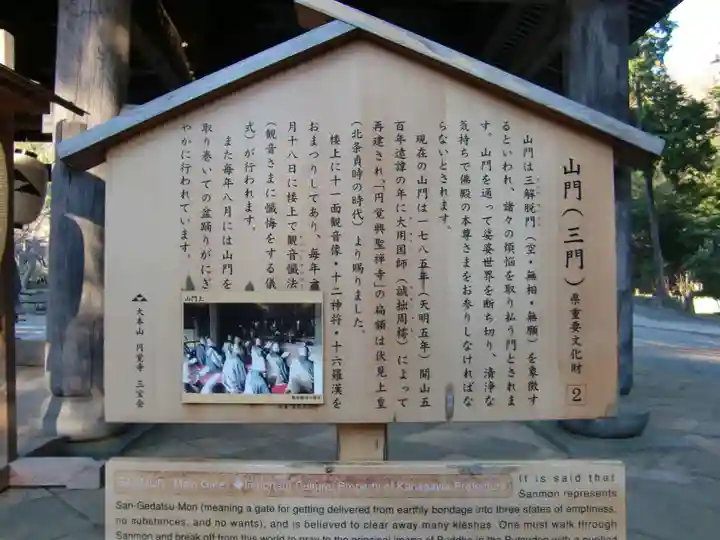 山門(三門) 県重要文化財 2
山門は三解脱門(空・無相・無願)を象徴す
るといわれ、諸々の煩悩を取り払う門とされま
す。山門を通って娑婆世界を断ち切り、清浄な
気持ちで佛殿の本尊さまをお参りしなければな
らないとされます。
現在の山門は一七八五年(天明五年)開山五
百年遠諱の年に大用国師(誠拙周樗)によって
再建され、「円覚興聖禅寺」の扁額は伏見上皇
(北条貞時の時代)より賜りました。
楼上に十一面観音像・十二神将・十六羅漢を
おまつりしてあり、毎年
月十八日に楼上で観音懺法
(観音さまに懺悔をする儀
式)が行われます。
また毎年八月には山門を
取り巻いての盆踊りがにぎ
やかに行われています。
大本山 円覚寺 三宝会
山門上
Main Gate ◆Important Cultural Property of Kanagawa Prefecture
It is said that
Sanmon represents
San-Gedatsu-Mon (meaning a gate for getting delivered from earthly bondage into three states of emptiness,
no substances, and no wants), and is believed to clear away many kleshas. One must walk through
Sanmon and break off from this world to pray to the principal image of Buddha in the Butsuden with a purified